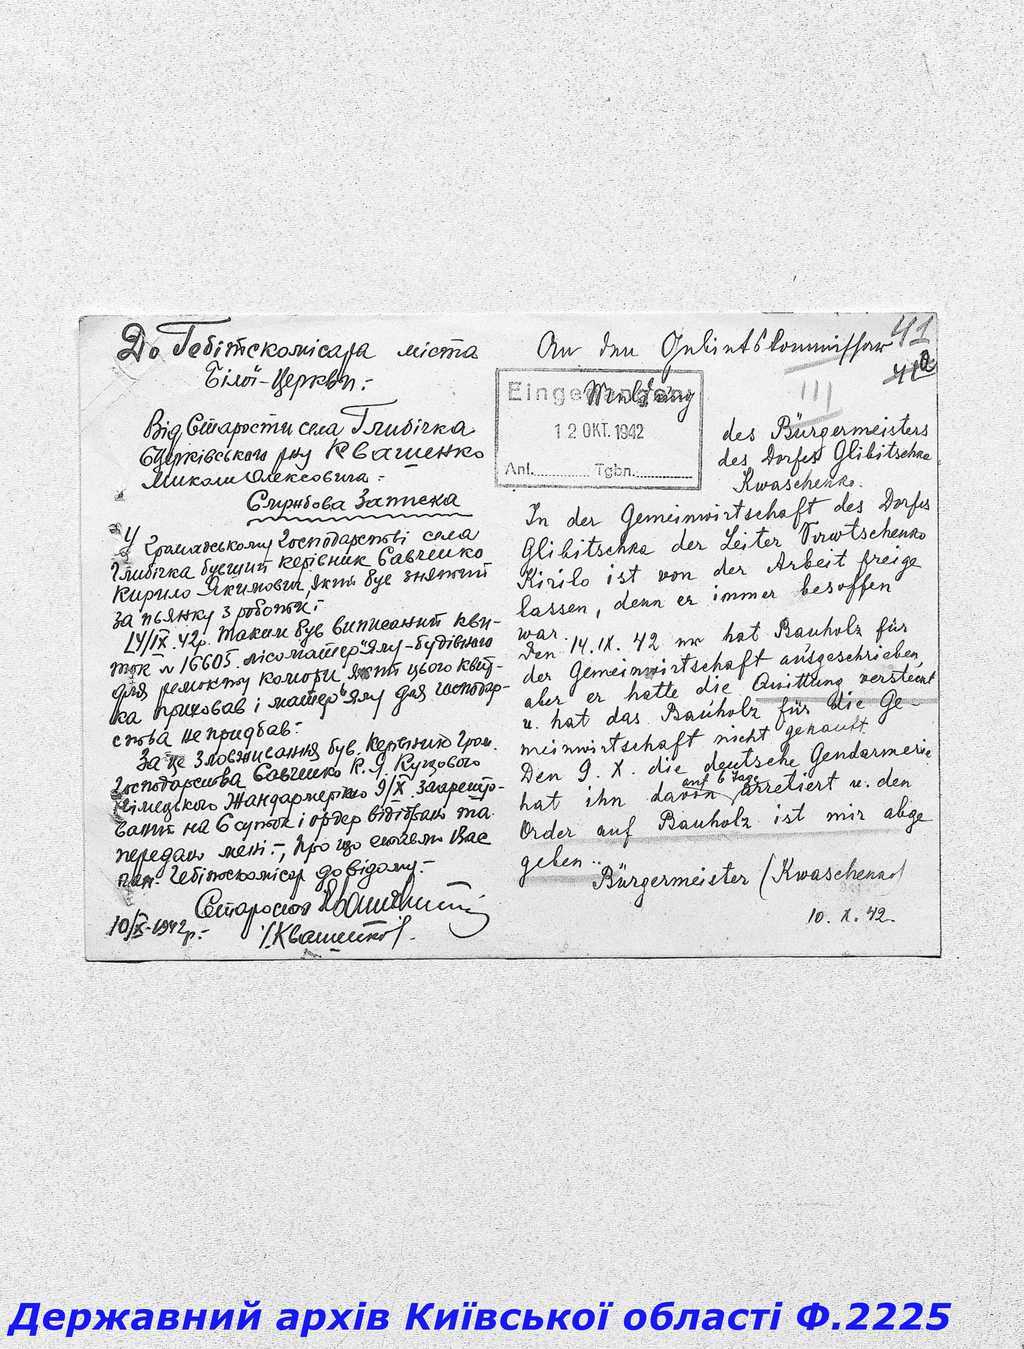 До Гебітскомісара міста
Білої-Церкви:-
Від Старости села Глибічка
Бцерківського р-ну Квашенко
Миколи Олексовича:-
Службова Записка
У громадському господарстві села
Глибічка бувший керівник Савченко
Кирило Якимович, який був знятий
за пьянку з роботи:-
14/IX.42р. таким був виписаний кви-
ток № 16605 лісоматер"ялу-будівного
для ремонту комори, який цього квит-
ка приховав і матер"ялу для господар-
ства не придбав:-
За це зловживання був. керівник Гром.
Господарства Савченко К.Я.
Німецького Жандармерією 9/X. заарешто-
ваний на 6 суток і ордер відібрали та
передали мені:-, про що ставлю Вас
пан. Гебітскомісар до відому:-
Староста
10/X-1942р:-
/Квашенко/.
An den Gebietskommissar
41
41a
III
Eingegangen
12 OKT. 1942
Ant. Tgbn.
Meldung
des Bürgermeisters
des Dorfes Glibitschka
Kwaschenko.
In der Gemeinwirtschaft des Dorfes
Glibitschka der Leiter
Kirilo ist von der Arbeit freige
lassen, denn er immer besoffen
war.
Den 14.IX.42 hat Bauholz für
der Gemeinwirtschaft ausgeschrieben,
aber er hatte die Quittung versteckt
u. hat das Bauholz für die Ge-
meinwirtschaft nicht gekauft.
Den 9. X. die deutsche Gendarmerie
auf 6 Tage
hat ihn davon arretiert u. den
Order auf Bauholz ist mir abge
geben..
Bürgermeister /Kwaschenko/
10. X. 42.
Державний архів Київської області Ф.2225